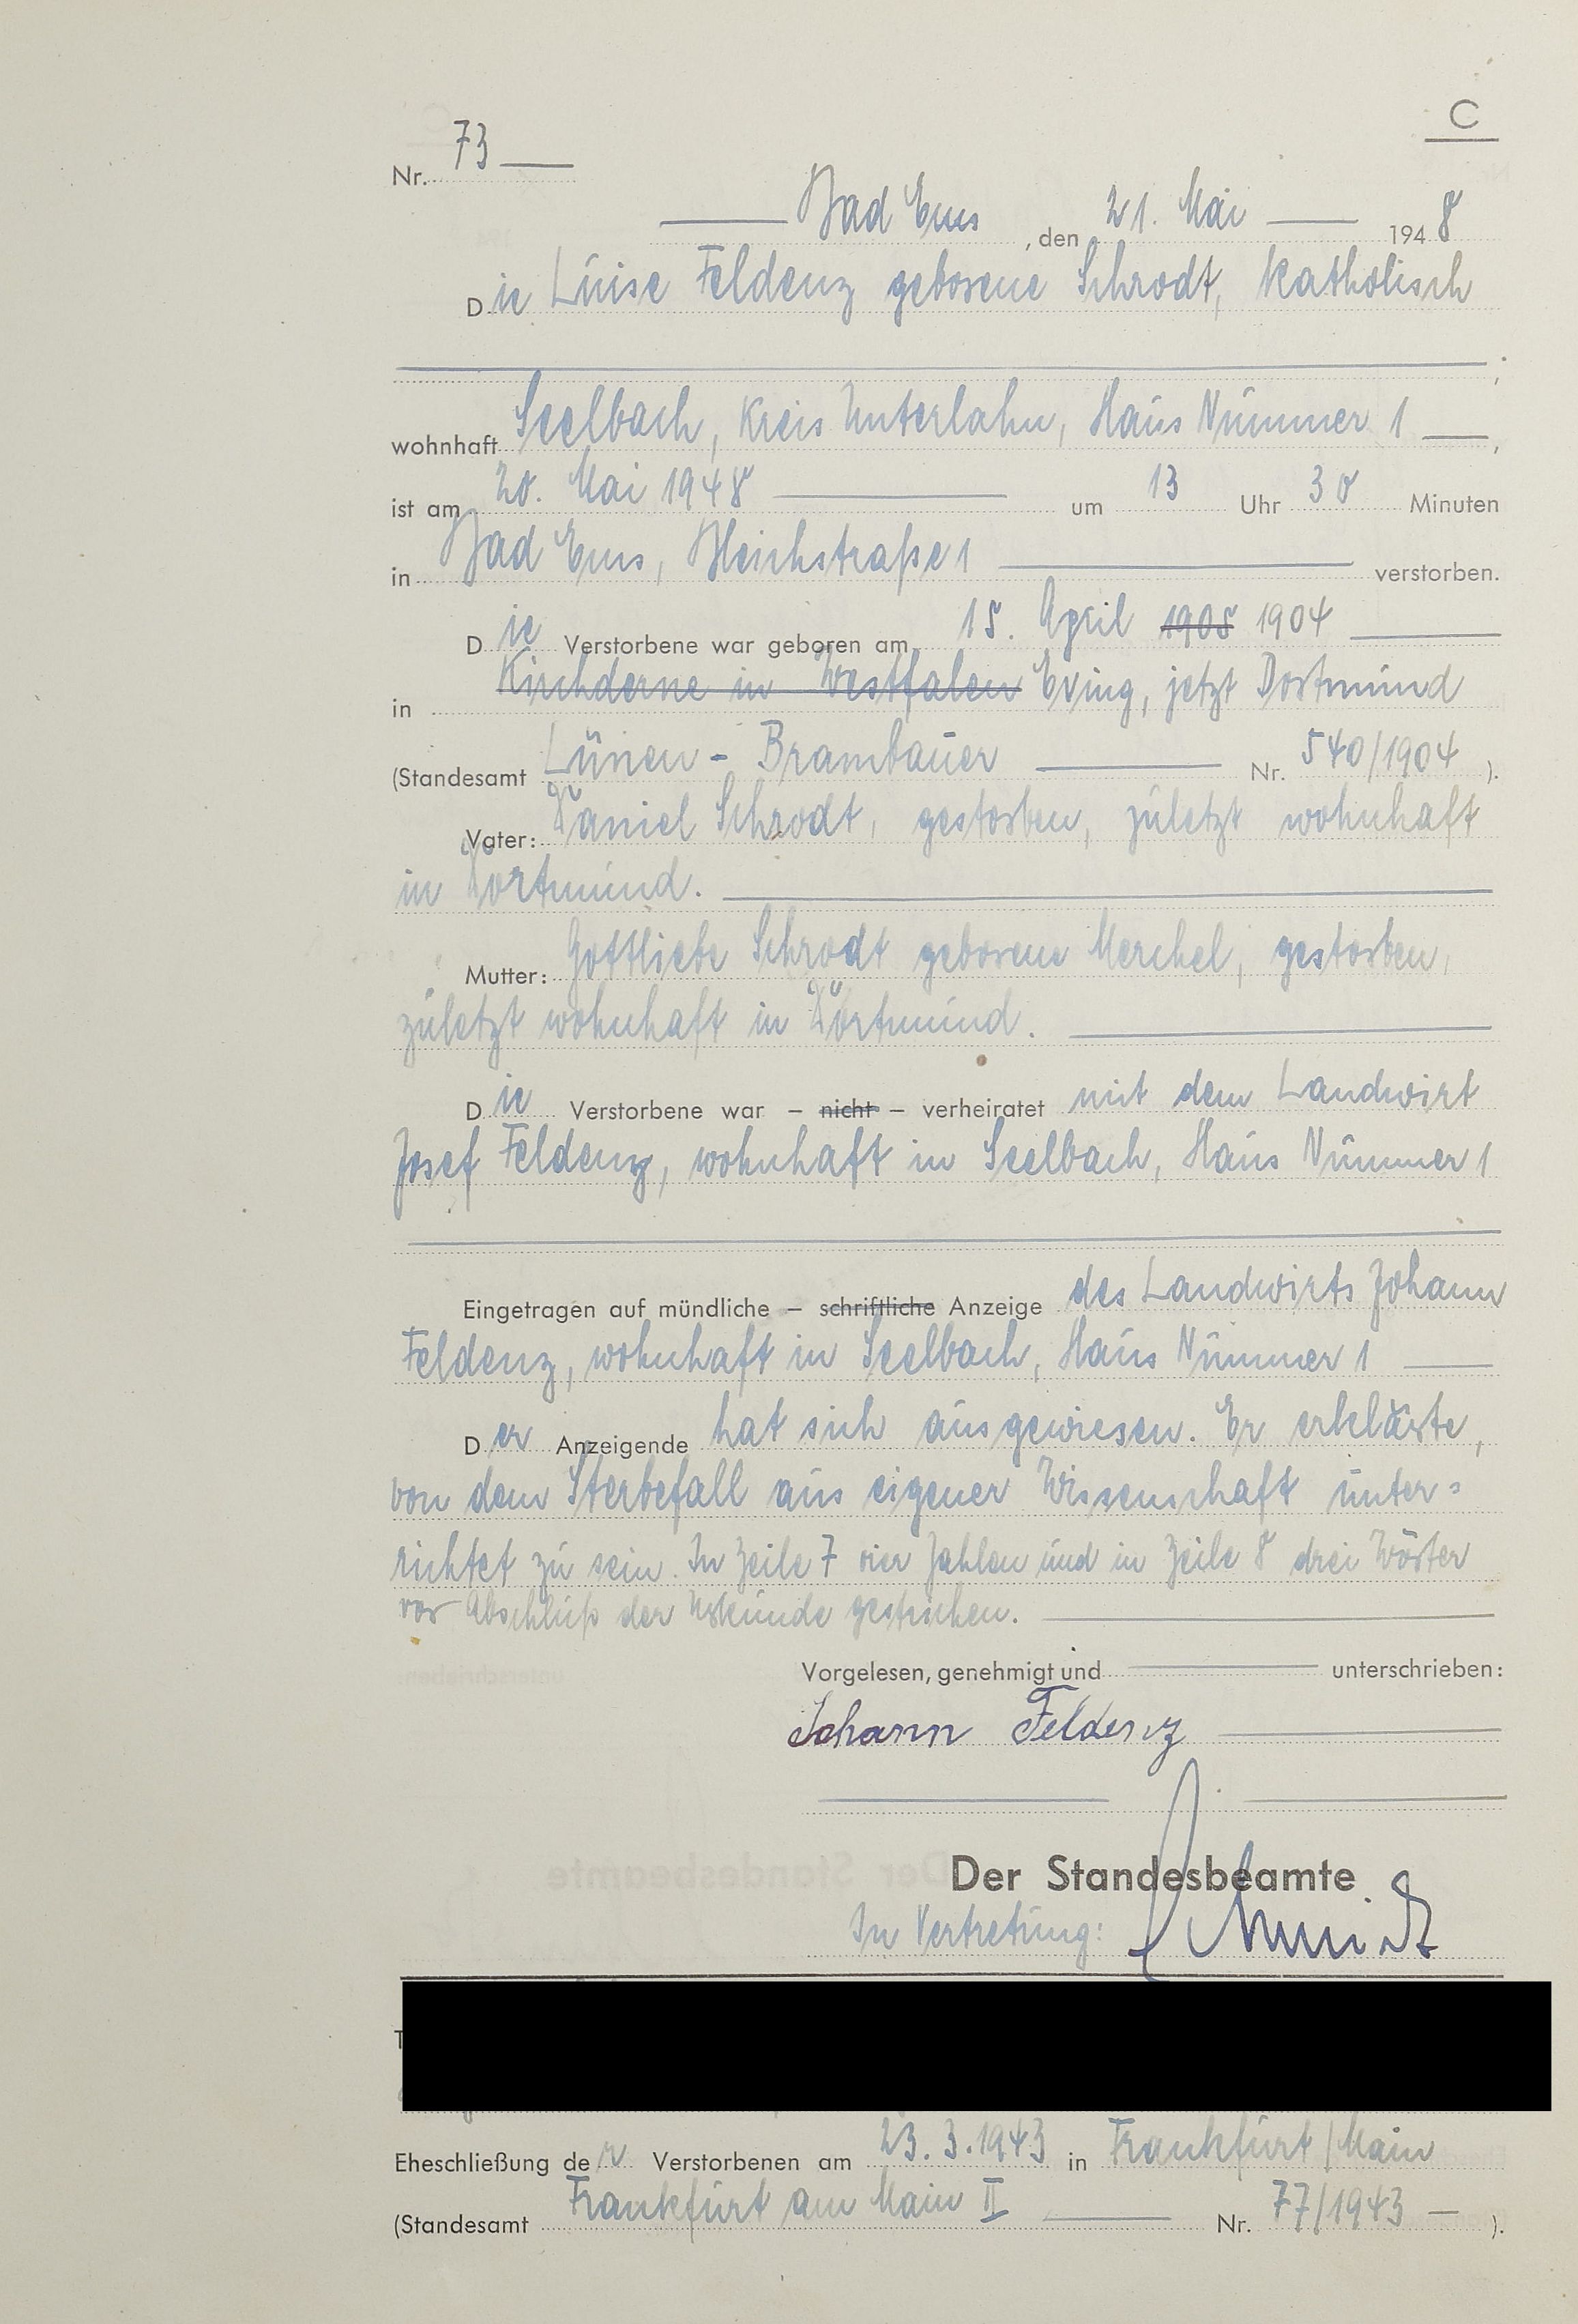 C
Nr. 73
Bad Ems, den 21. Mai 1948
Die Luise Feldenz geborene Schrodt, katholisch
;
wohnhaft Seelbach, Kreis Unterlahn, Haus Nummer 1,
ist am 20. Mai 1948 um 13 Uhr 30 Minuten
in Bad Ems, Bleichstraße 1 verstorben.
Die Verstorbene war geboren am 15. April 1905 1904
in Kirchderne in Westfalen Eving, jetzt Dortmund
(Standesamt Lünen - Brambauer Nr. 540/1904 ).
Vater: Daniel Schrodt, gestorben, zuletzt wohnhaft
in Dortmund.
Mutter: Gottliebe Schrodt geborene Merchel, gestorben,
zuletzt wohnhaft in Dortmund.
Die Verstorbene war – nicht – verheiratet mit dem Landwirt
Josef Feldenz, wohnhaft in Seelbach, Haus Nummer 1
Eingetragen auf mündliche – schriftliche Anzeige des Landwirts Johann
Feldenz, wohnhaft in Seelbach, Haus Nummer 1
Der Anzeigende hat sich ausgewiesen. Er erklärte,
von dem Sterbefall aus eigener Wissenschaft unter=
richtet zu sein. In Zeile 7 vier Zahlen und in Zeile 8 drei Wörter
vor Abschluß der Urkunde gestrichen.
Vorgelesen, genehmigt und unterschrieben:
Johann Feldenz
Der Standesbeamte
In Vertretung: Schmidt
Eheschließung der Verstorbenen am 23. 3. 1943 in Frankfurt / Main
(Standesamt Frankfurt am Main II Nr. 77/1943 ).